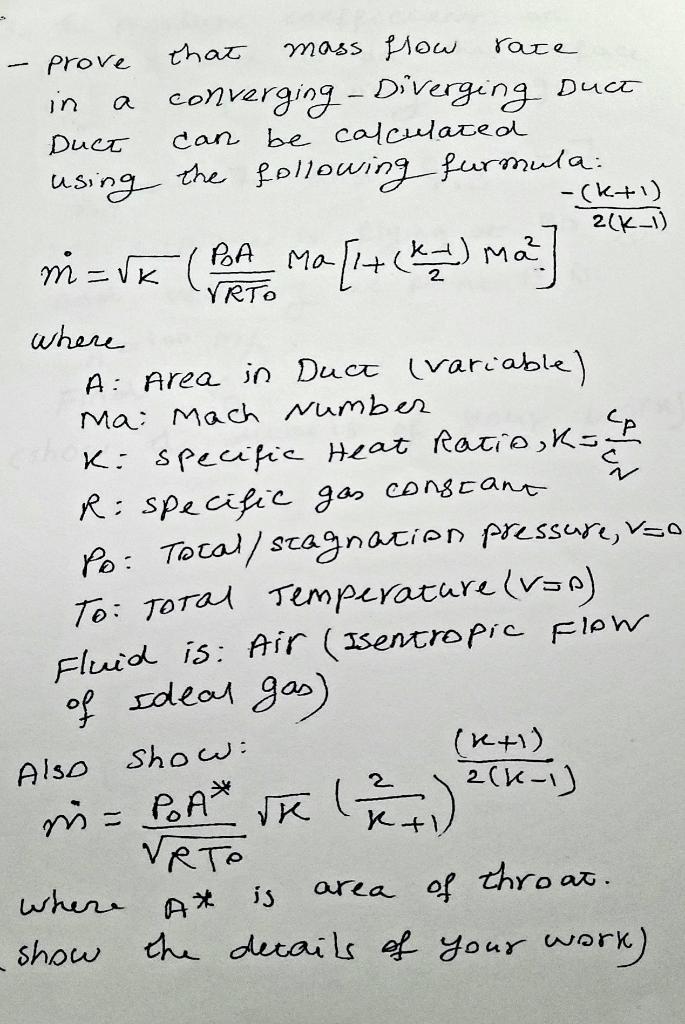 - Prove that mass flow rate
in a converging-Diverging Duct
Duct can be calculated
using the following furmula:
ṁ = √K ( P₀A / √RT₀ Ma [1+(K-1 / 2) Ma²]^-(K+1) / 2(K-1)
where
A: Area in Duct (variable)
Ma: Mach Number
K: specific Heat Ratio, K = Cp / Cv
R: specific gas constant
P₀: Total/stagnation pressure, V=0
T₀: Total Temperature (V=0)
Fluid is: Air (Isentropic Flow
of Ideal gas)
Also show:
ṁ = P₀A* / √RT₀ √K (2 / K+1)^(K+1) / 2(K-1)
where A* is area of throat.
(show the details of your work)